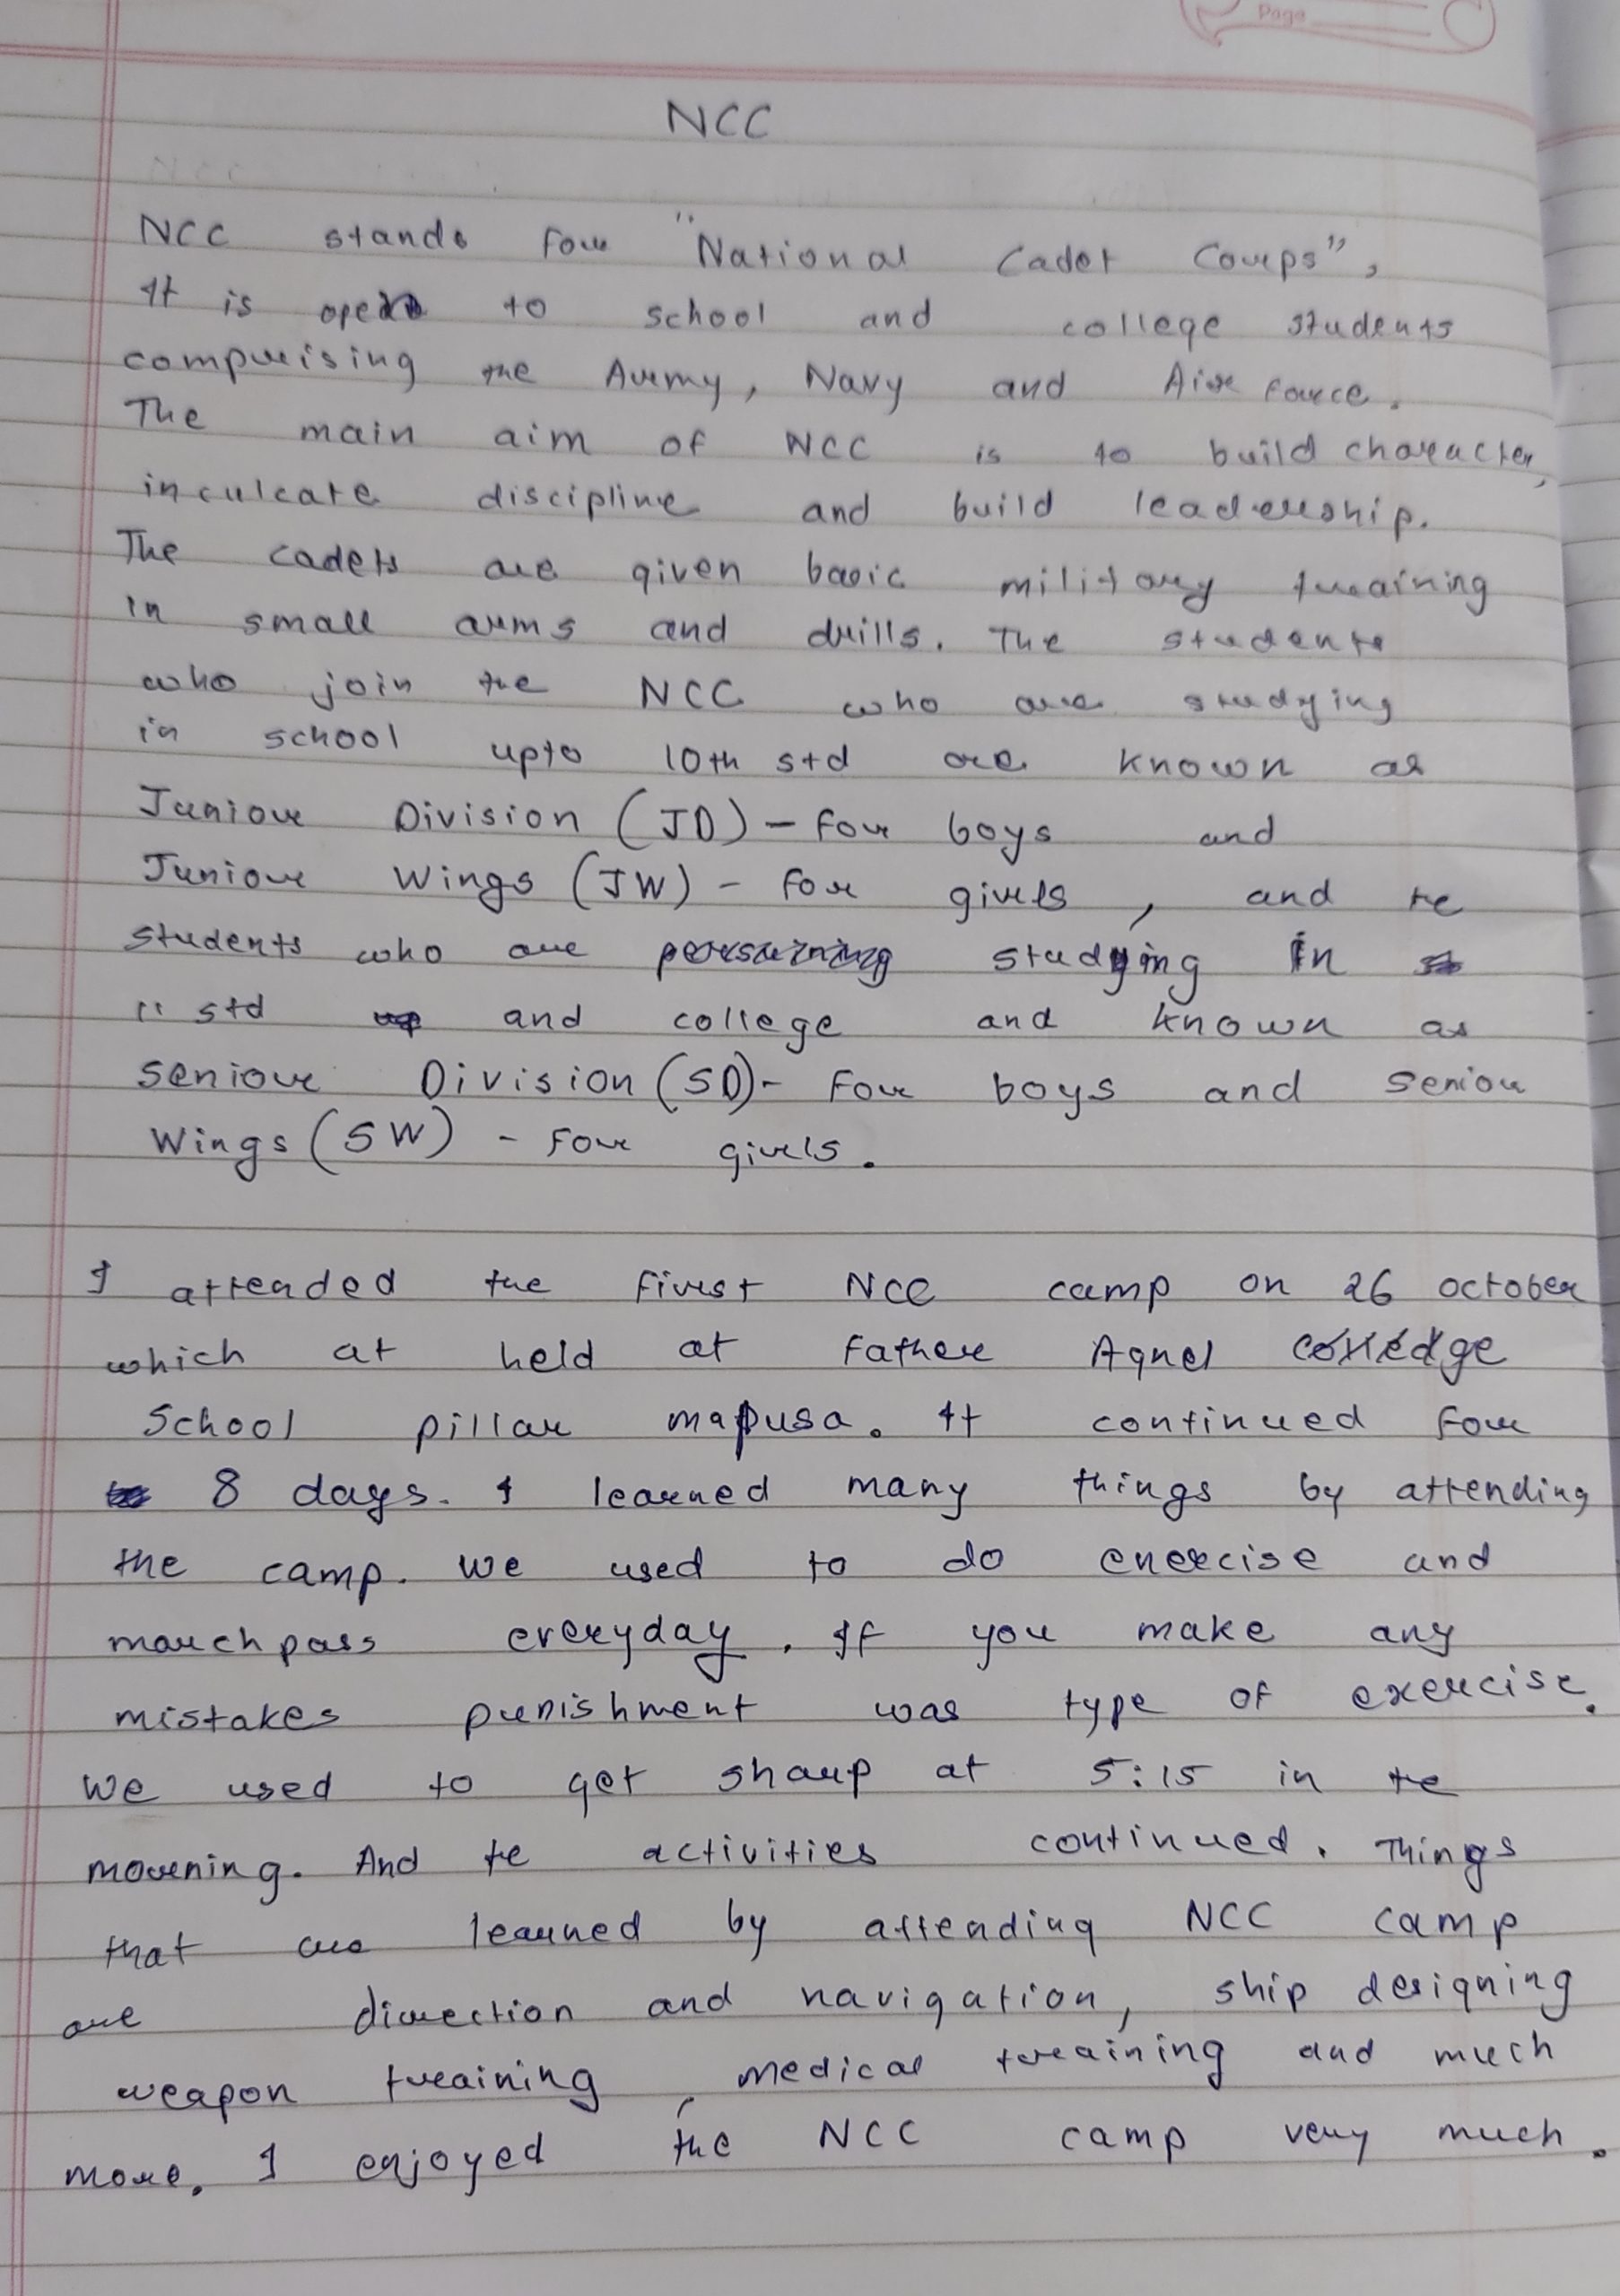 Page
NCC
NCC stands for "National Cadet Corps",
It is open to school and college students
comprising the Army, Navy and Air force.
The main aim of NCC is to build character,
inculcate discipline and build leadership.
The cadets are given basic military training
in small arms and drills. The students
who join the NCC who are studying
in school upto 10th std are known as
Junior Division (JD) - for boys and
Junior Wings (JW) - for girls, and te
students who are studying in
11 std and college and known as
Senior Division (SD) - For boys and Senior
Wings (SW) - For girls.
I attended the first NCC camp on 26 october
which at held at Father Agnel
School pillar mapusa. It continued for
8 days. I learned many things by attending
the camp. We used to do exercise and
marchpass everyday. If you make any
mistakes punishment was type of exercise.
We used to get sharp at 5:15 in te
morning. And te activities continued. Things
that are learned by attending NCC camp
are direction and navigation, ship designing
weapon training, medical training and much
more. I enjoyed the NCC camp very much.